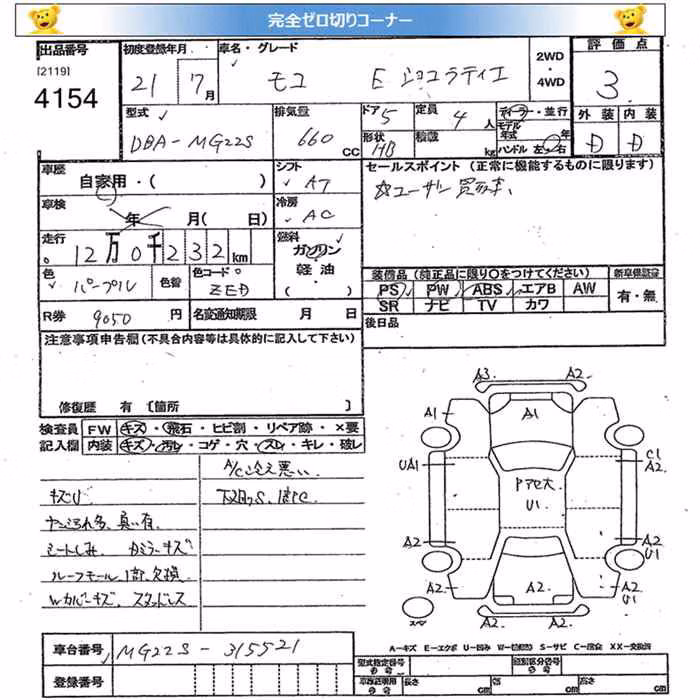 完全ゼロ切りコーナー
出品番号
[2119]
4154
初度登録年月
21 7月
車名・グレード
モコ E ショコラティエ
2WD・4WD
評価点
3
型式
DBA-MG22S
排気量
660 CC
ドア 5
形状 HB
定員 4人
積載 kg
ディーラー・並行
モデル年式 年
ハンドル 左・右
外装 内装
D D
車歴
自家用・( )
シフト
AT
セールスポイント (正常に機能するものに限ります)
☆ユーザー買取車、
車検
年 月( 日)
冷房
AC
走行
12万0千232km
燃料
ガソリン・軽油・( )
色
パープル
色替
色コード
ZED
装備品 (純正品に限り○をつけてください)
新車保証書
PS PW ABS エアB AW
有・無
SR ナビ TV カワ
R券 9050円
名変通知期限 月 日
後日品
注意事項申告欄(不具合内容等は具体的に記入して下さい)
修復歴 有 〔箇所 〕
検査員 FW キズ・飛石・ヒビ割・リペア跡・×要
記入欄 内装 キズ・汚レ・コゲ・穴・スレ・キレ・破レ
A/C冷え悪い
キズU
下廻りS、錆C
シートしみ カミラーキズ
ルーフモール1部欠損
Wカバーキズ スタッドレス
A3. A2.
A1 A1
UA1
C1 A2
U1
A2 A2 U1
A2 A2. A2 U1
A2.
スペア
A-キズ E-エクボ U-凹み S-サビ C-腐食 XX-交換済
車台番号
MG22S-315521
登録番号
型式指定番号
類別区分番号
長さ cm 幅 cm 高さ cm